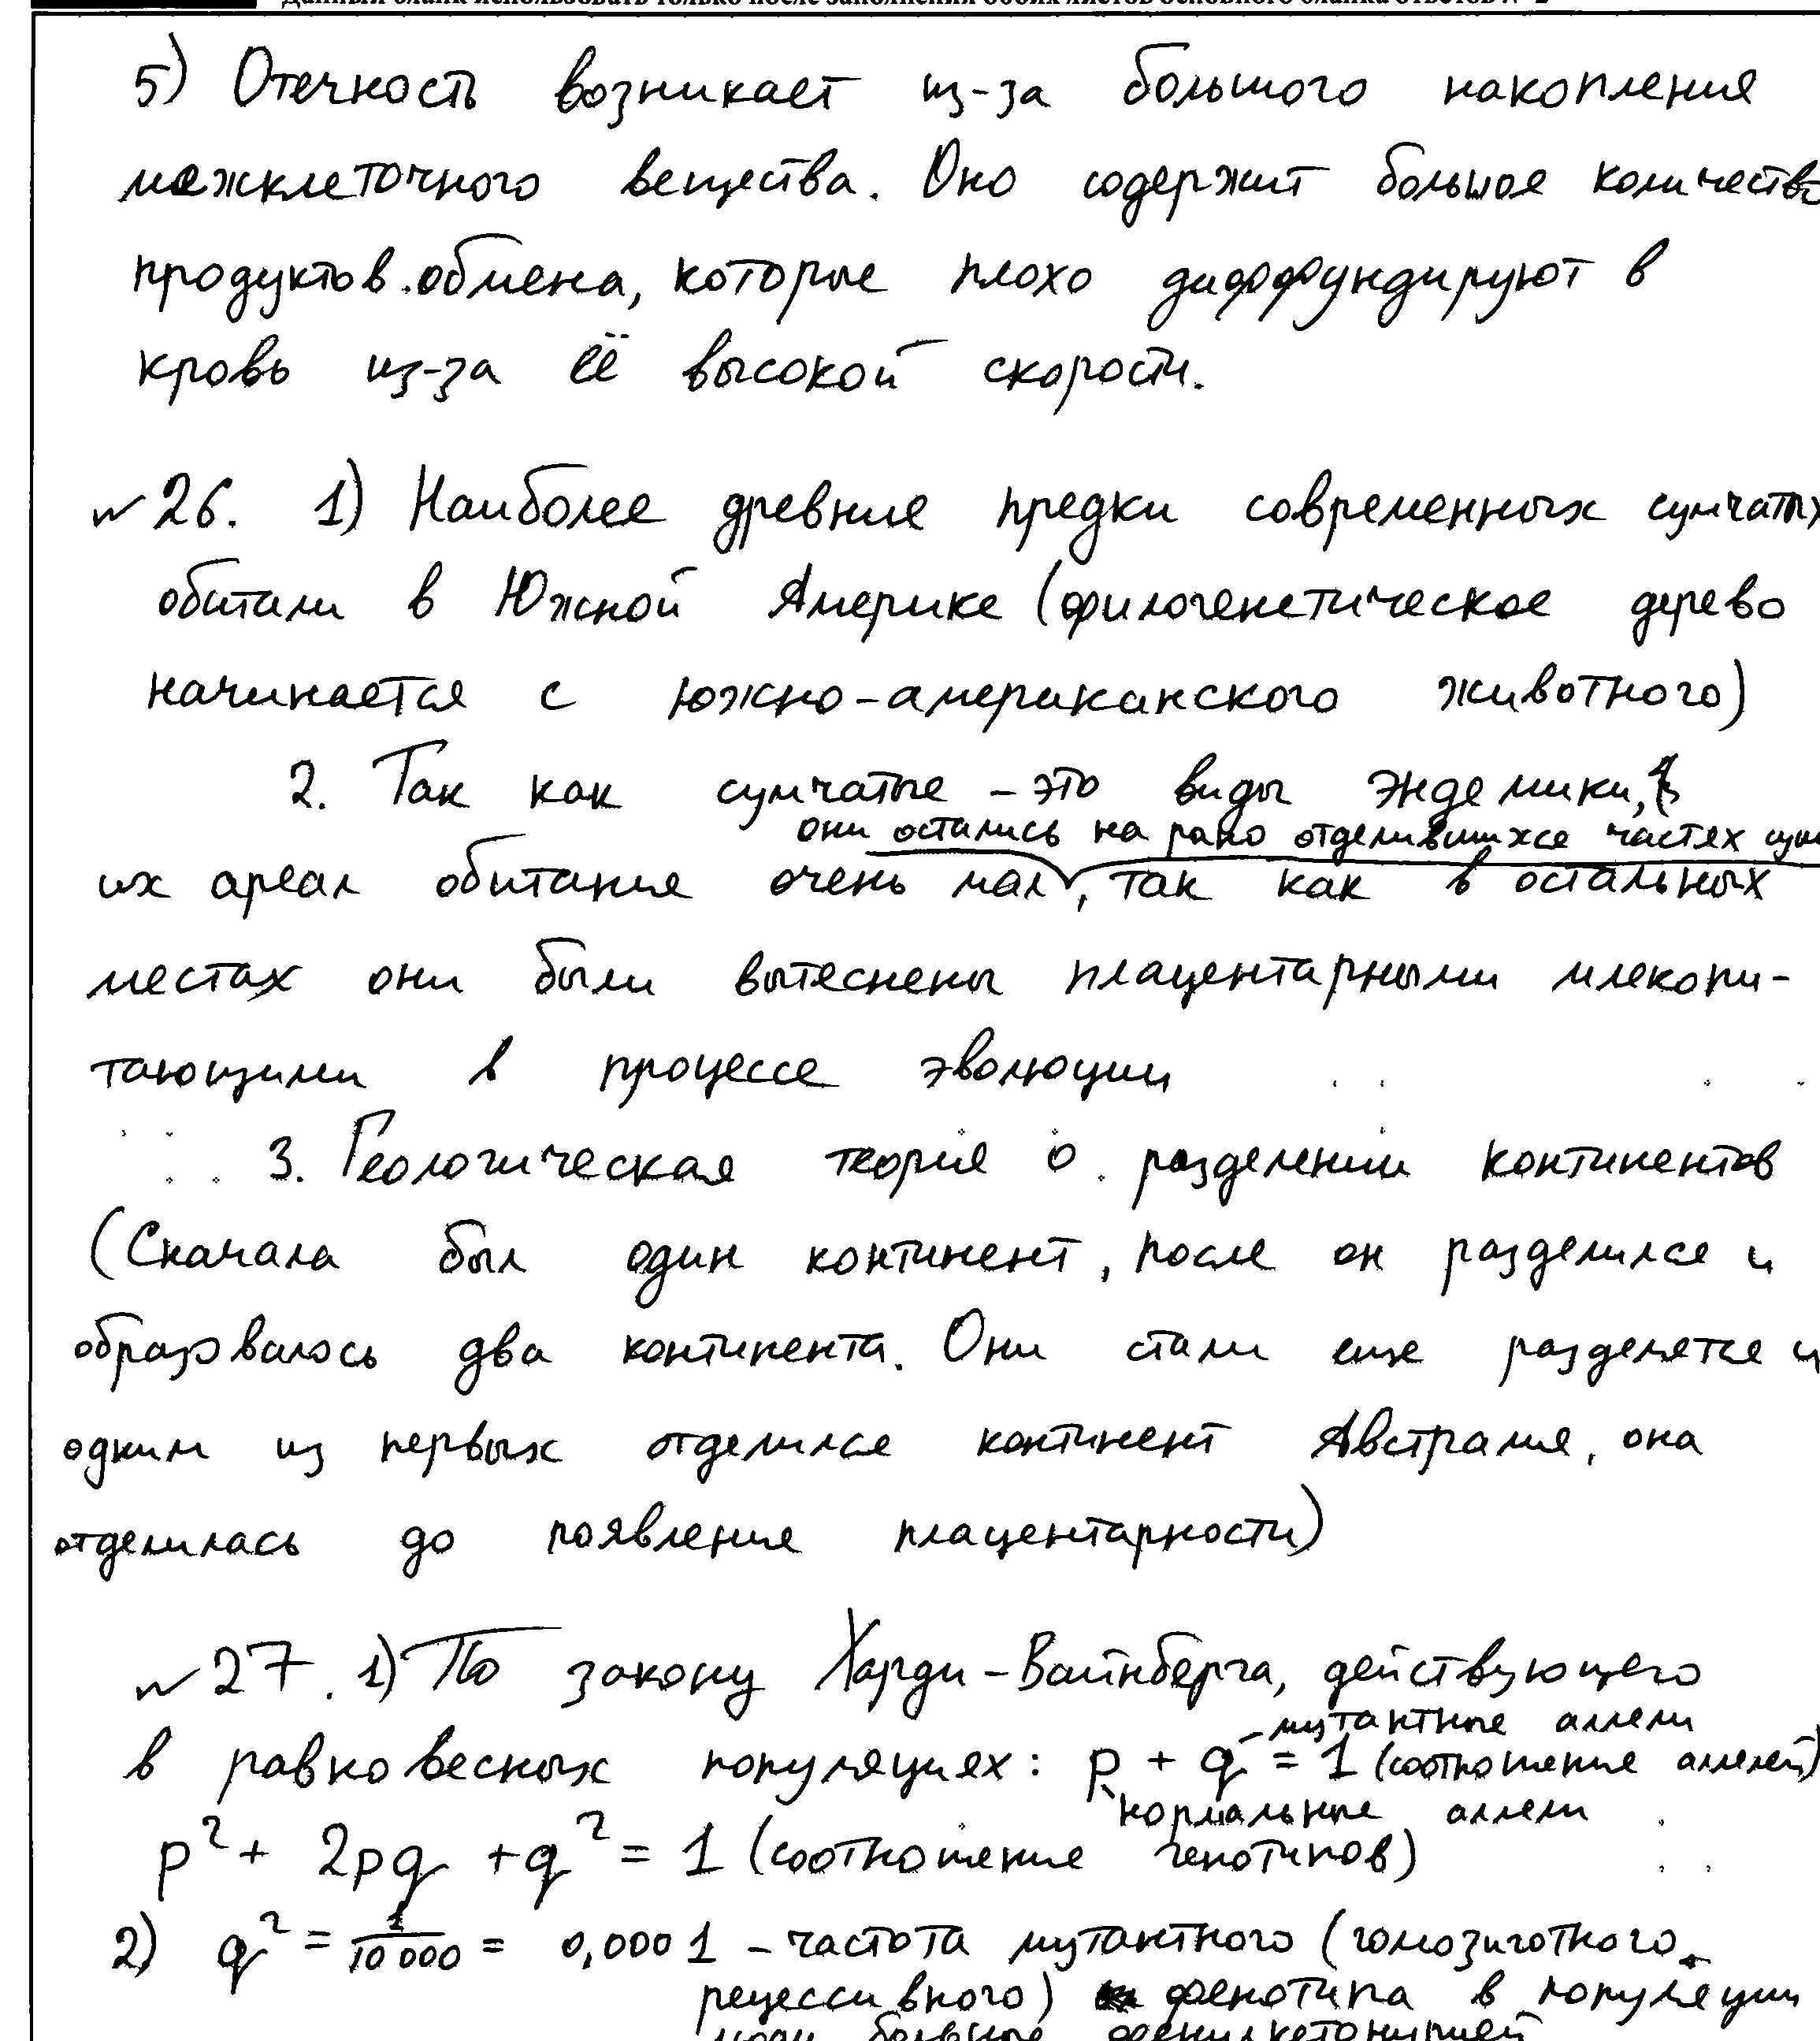 Данный бланк использовать только после заполнения обоих листов основного бланка ответов № 2
5) Отечность возникает из-за большого накопления
межклеточного вещества. Оно содержит большое количество
продуктов обмена, которые плохо диффундируют в
кровь из-за её высокой скорости.
№ 26. 1) Наиболее древние предки современных сумчатых
обитали в Южной Америке (филогенетическое дерево
начинается с южно-американского животного)
2. Так как сумчатые - это виды эндемики,
они остались на рано отделившихся частях
их ареал обитания очень мал, так как в остальных
местах они были вытеснены плацентарными млекопи-
тающими в процессе эволюции
3. Геологическая теория о разделении континентов
(Сначала был один континент, после он разделился и
образовалось два континента. Они стали еще разделятся и
одним из первых отделился континент Австралия, она
отделилась до появления плацентарности)
№ 27. 1) По закону Харди-Вайнберга, действующего
- мутантные аллели
в равновесных популяциях: p + q = 1 (соотношение аллелей)
нормальные аллели
p² + 2pq + q² = 1 (соотношение генотипов)
2) q² = 1/10 000 = 0,0001 - частота мутантного (гомозиготного
рецессивного) фенотипа в популяции
люди больные фенилкетонурией